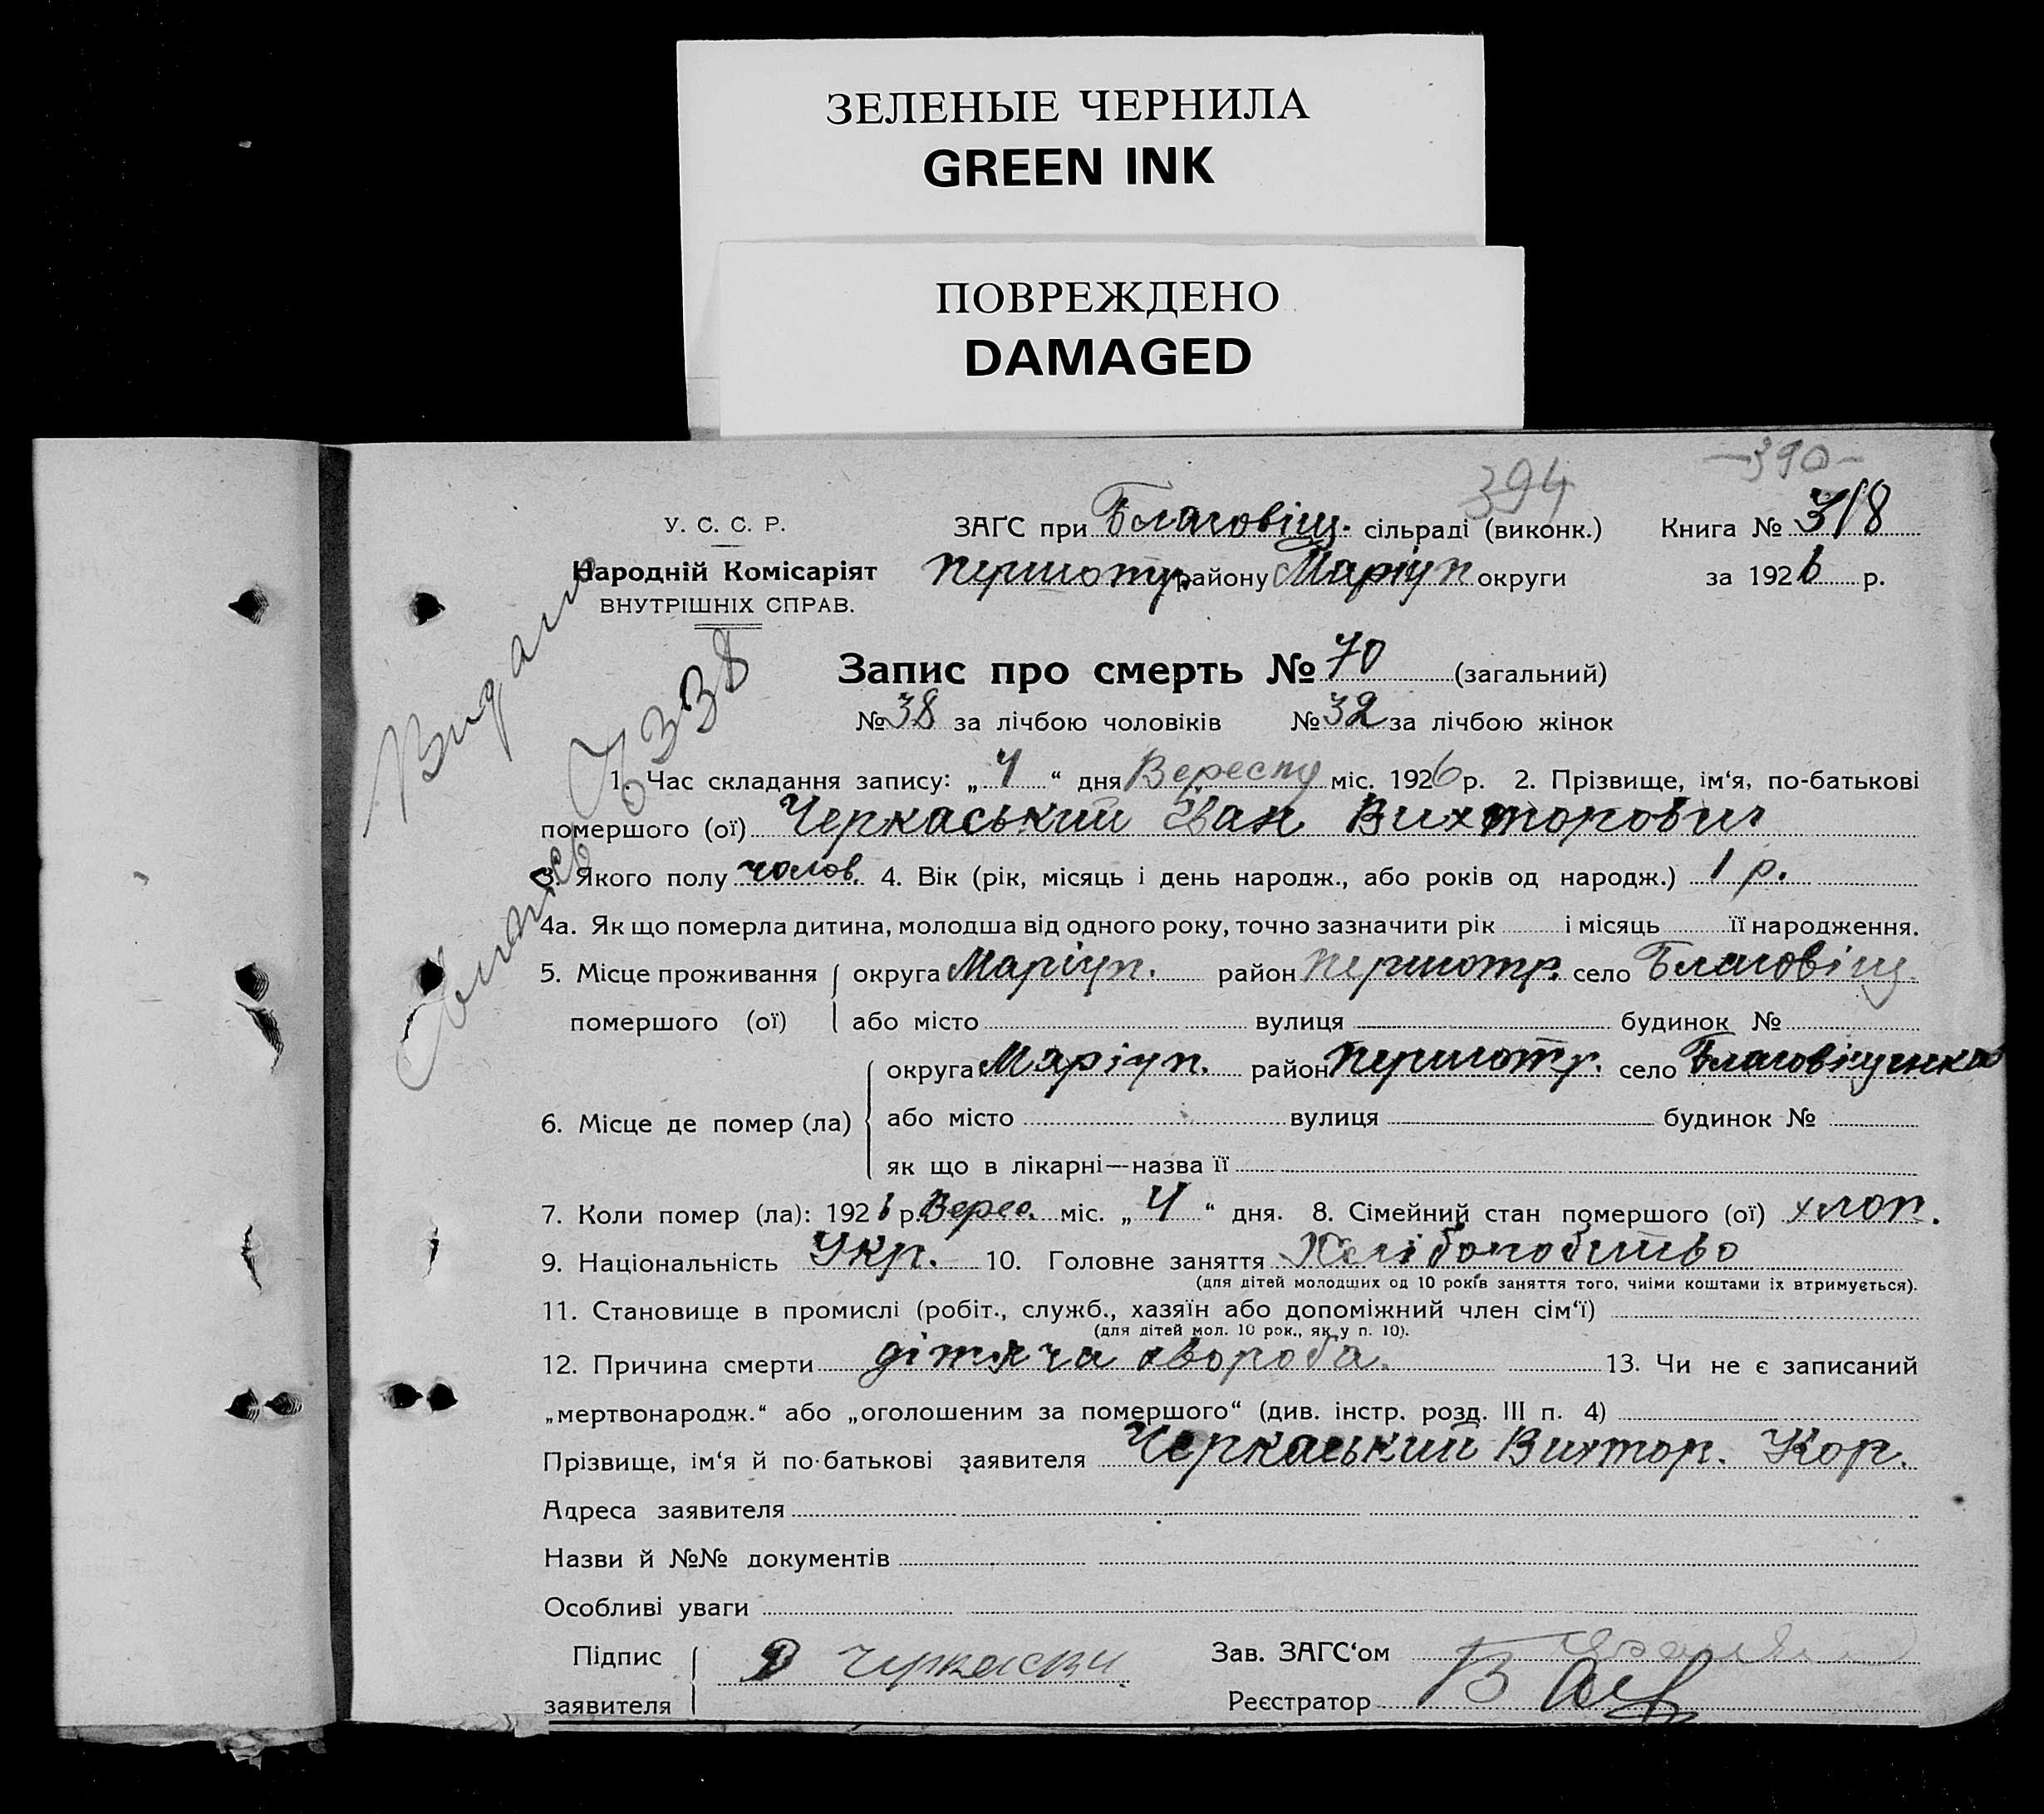 ЗЕЛЕНЫЕ ЧЕРНИЛА
GREEN INK
ПОВРЕЖДЕНО
DAMAGED
394 —390—
У. С. С. Р. ЗАГС при Благовіщ. сільраді (виконк.) Книга № 3/8
Народній Комісаріят Першотр. району Маріуп округи за 1926 р.
ВНУТРІШНІХ СПРАВ.
Видано
Запис про смерть № 70 (загальний)
№ 38 за лічбою чоловіків № 32 за лічбою жінок
1. Час складання запису: „4“ дня Вересну міс. 1926 р. 2. Прізвище, ім‘я, по-батькові
помершого (ої) Черкаський Іван Вихторович
3. Якого полу чолов. 4. Вік (рік, місяць і день народж., або років од народж.) 1 р.
4а. Як що померла дитина, молодша від одного року, точно зазначити рік і місяць її народження.
5. Місце проживання округа Маріуп. район Першотр. село Благовіщ
помершого (ої) або місто вулиця будинок №
округа Маріуп. район Першотр. село Благовіщенка
6. Місце де помер (ла) або місто вулиця будинок №
як що в лікарні—назва її
7. Коли помер (ла): 1926 р. Верес. міс. „4“ дня. 8. Сімейний стан помершого (ої) хлоп.
9. Національність Укр. 10. Головне заняття
(для дітей молодших од 10 років заняття того, чиїми коштами їх втримується).
11. Становище в промислі (робіт., служб., хазяїн або допоміжний член сім‘ї)
(для дітей мол. 10 рок., як у п. 10).
12. Причина смерти дітяча хвороба. 13. Чи не є записаний
„мертвонародж.“ або „оголошеним за помершого“ (див. інстр. розд. III п. 4)
Прізвище, ім‘я й по-батькові заявителя Черкаський Вихтор. Кор.
Адреса заявителя
Назви й №№ документів
Особливі уваги
Підпис Зав. ЗАГС‘ом
заявителя Реєстратор